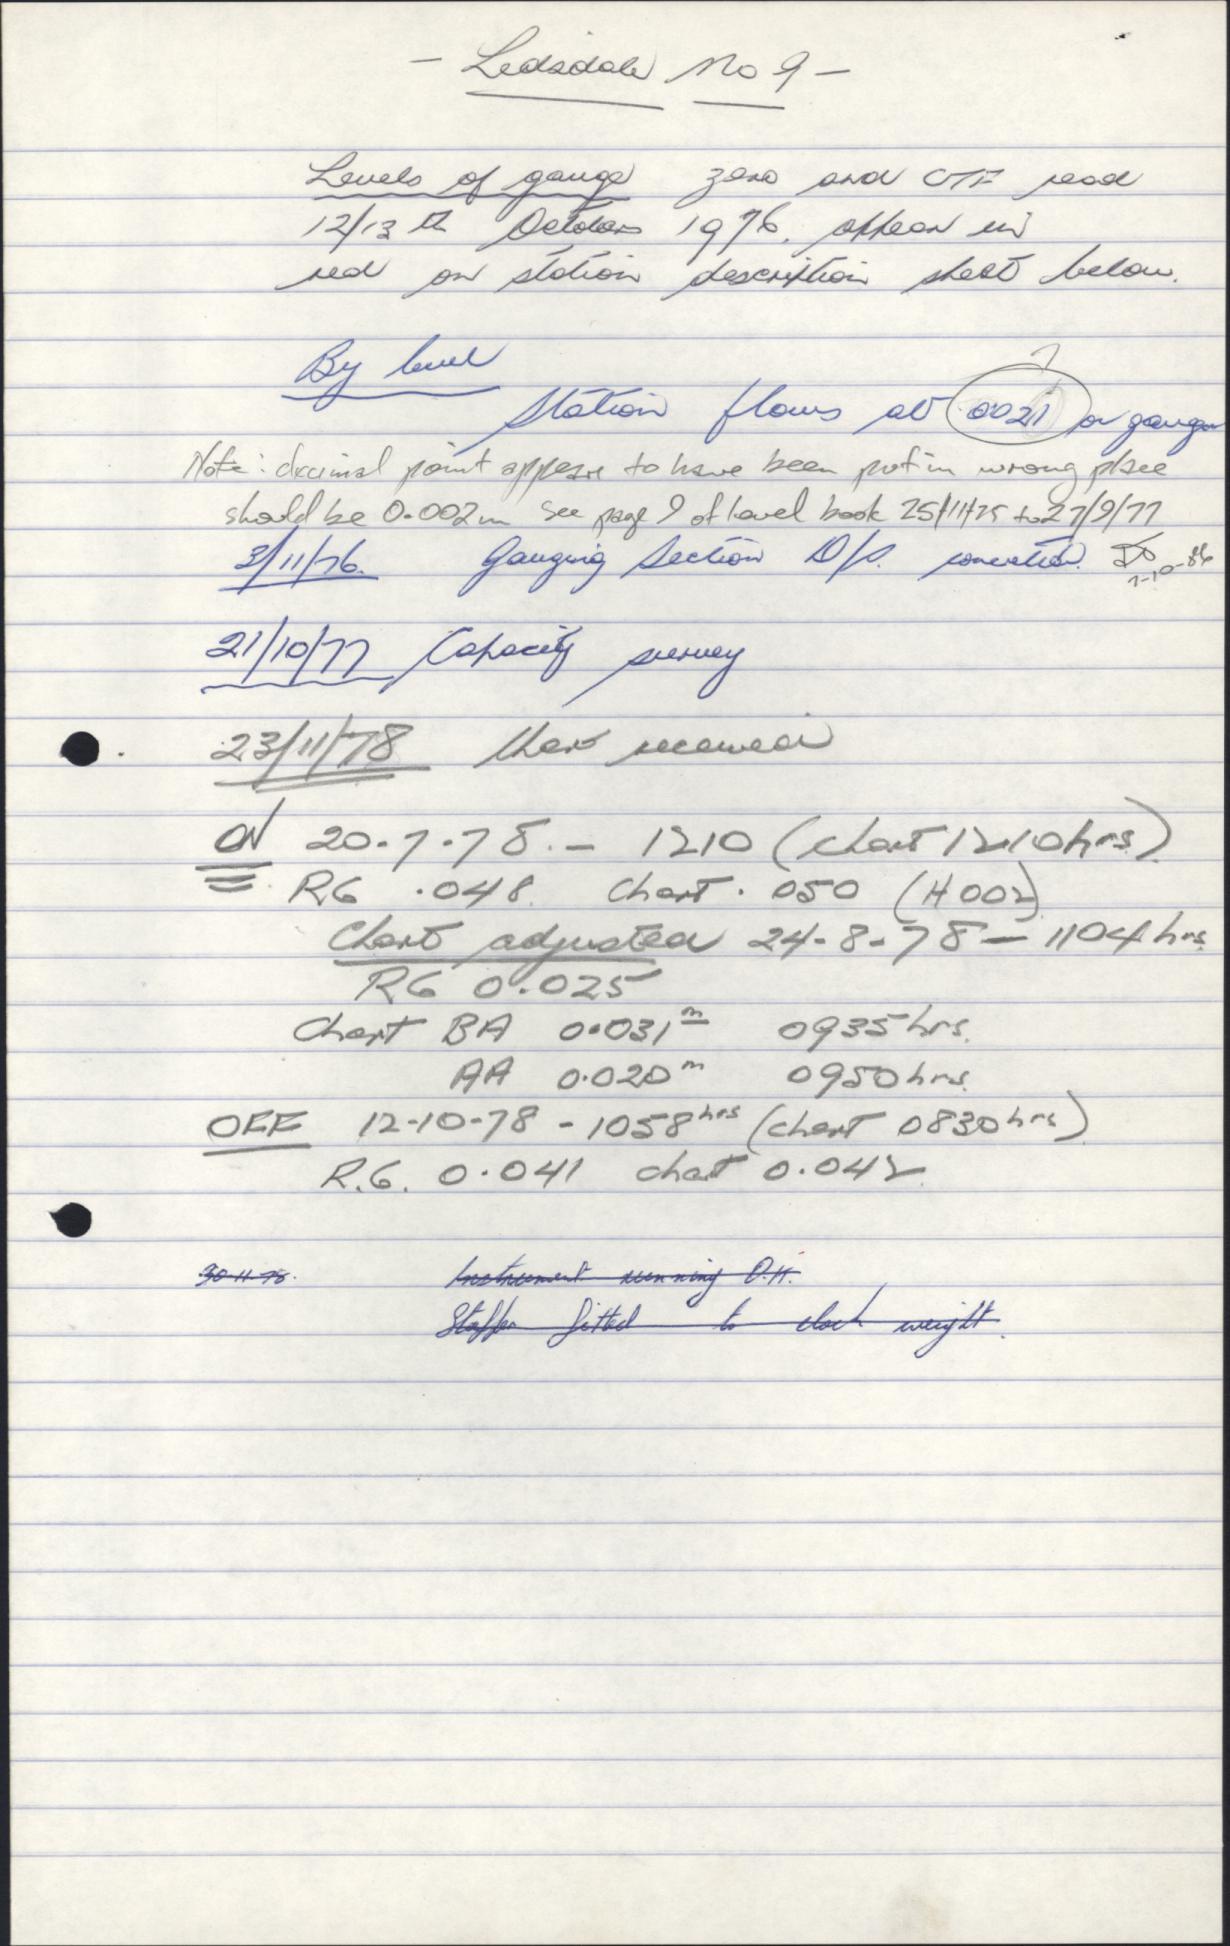 - Ledsdale No 9 -
Levels of gauge zero and CTF read
12/13th October 1976, appear in
red on station description sheet below.
By level
?
Station flows at 0.021 on gauge
Note: decimal point appears to have been put in wrong place
should be 0.002m See page 9 of level book 25/11/75 to 27/9/77
3/11/76. Gauging Section D/S.
7-10-86
21/10/77 Capacity survey
23/11/78 Chart received
ON 20.7.78. - 1210 (chart 1210hrs)
RG .048. Chart. 050 (H 002)
Chart adjusted 24-8-78 - 1104hrs
RG 0.025
Chart BA 0.031m 0935hrs.
AA 0.020m 0950hrs.
OFF 12-10-78 - 1058hrs (chart 0830hrs)
R.G. 0.041 chart 0.042
30-11-78. Instrument running O.K.
Stopper fitted to clock weight.